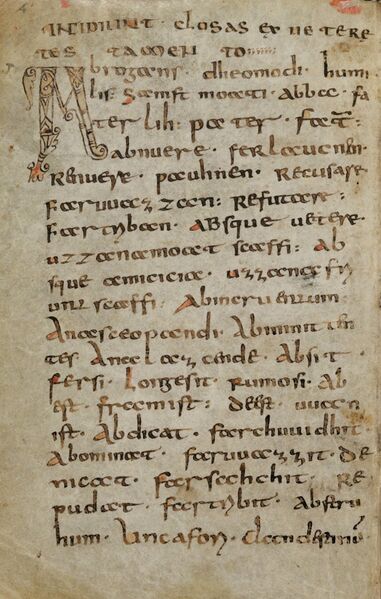 INCIPIUNT CLOSAS EX UETERE
TES TAMEN TO
Abrogans · dheomodi · humi
lis samft moati · abba · fa
ter lih: pater · fat̅:
abnuere · ferlaucnen ·
Renuere · pauhnen · recusare
faruuazzan: refutare:
fartriban · Absque uetere ·
uzzana moat scaffi: ab
sque amicicia · uzzana fri
unt scaffi ·
Anascopandi ·
tes Anelazende · Absit ·
fersi · Longesit rumosi · Ab
est · fremist: deest · uuan
ist · Abdicat · farchuuidhit
Abominat · faruuazzit · De
nicat · farsahchit · Re
pudat · fartribit ·
hum · Uncafori · Clandestinū